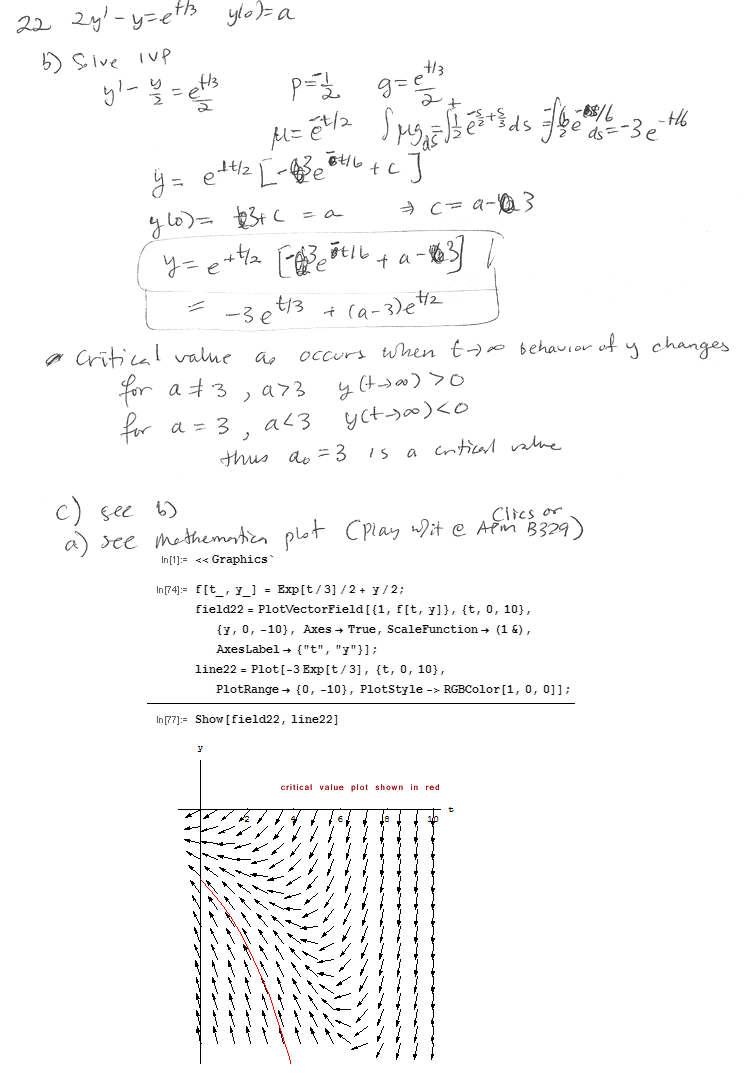 22 2y' - y = e^{t/3} y(0) = a
b) Solve IVP
y' - y/2 = e^{t/3}/2 p = -1/2 g = e^{t/3}/2
μ = e^{-t/2} ∫μg ds = ∫^t 1/2 e^{-s/2 + s/3} ds = ∫ 1/2 e^{-s/6} ds = -3 e^{-t/6}
y = e^{+t/2} [-3e^{-t/6} + c]
y(0) = -3 + c = a ⇒ c = a - 3
y = e^{+t/2} [-3e^{-t/6} + a - 3]
= -3e^{t/3} + (a-3)e^{t/2}
Critical value a₀ occurs when t→∞ behavior of y changes
for a ≠ 3, a>3 y(t→∞) > 0
for a = 3, a<3 y(t→∞) < 0
thus a₀ = 3 is a critical value
c) see b)
a) see mathematica plot (play w/it @ Clics or APM B329)
In[1]:= << Graphics`
In[74]:= f[t_, y_] = Exp[t/3]/2 + y/2;
field22 = PlotVectorField[{1, f[t, y]}, {t, 0, 10},
{y, 0, -10}, Axes → True, ScaleFunction → (1 &),
AxesLabel → {"t", "y"}];
line22 = Plot[-3 Exp[t/3], {t, 0, 10},
PlotRange → {0, -10}, PlotStyle -> RGBColor[1, 0, 0]];
In[77]:= Show[field22, line22]
y
critical value plot shown in red
t
2 4 6 8 10